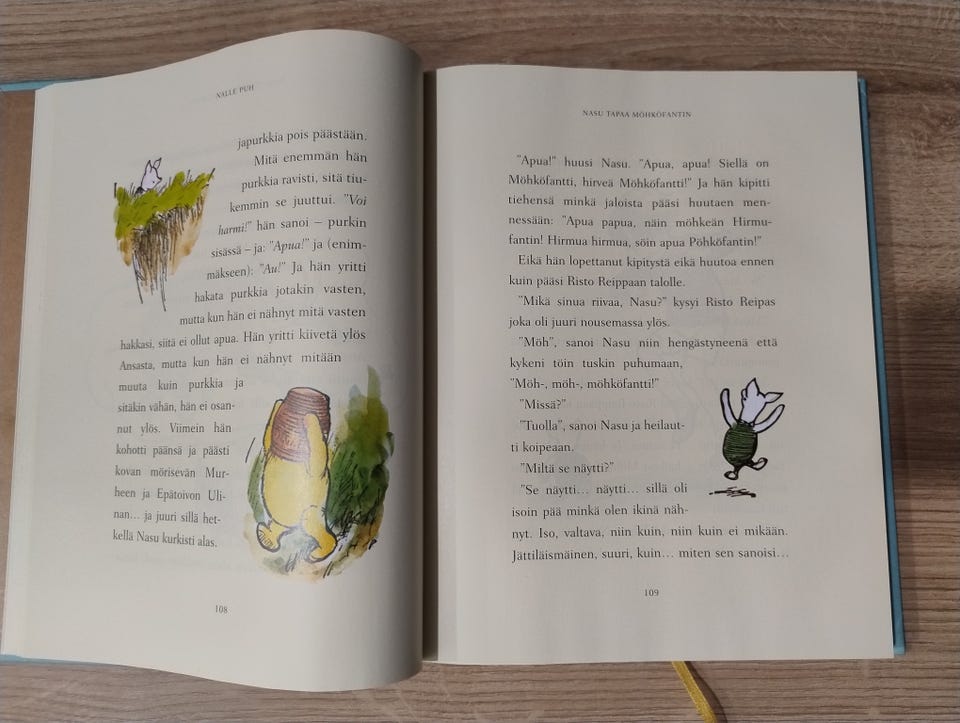 NALLE PUH
japurkkia pois päästään.
Mitä enemmän hän
purkkia ravisti, sitä tiu-
kemmin se juuttui. "Voi
harmi!" hän sanoi – purkin
sisässä – ja: "Apua!" ja (enim-
mäkseen): "Au!" Ja hän yritti
hakata purkkia jotakin vasten,
mutta kun hän ei nähnyt mitä vasten
hakkasi, siitä ei ollut apua. Hän yritti kiivetä ylös
Ansasta, mutta kun hän ei nähnyt mitään
muuta kuin purkkia ja
sitäkin vähän, hän ei osan-
nut ylös. Viimein hän
kohotti päänsä ja päästi
kovan mörisevän Mur-
heen ja Epätoivon Uli-
nan... ja juuri sillä het-
kellä Nasu kurkisti alas.
108
NASU TAPAA MÖHKÖFANTIN
"Apua!" huusi Nasu. "Apua, apua! Siellä on
Möhköfantti, hirveä Möhköfantti!" Ja hän kipitti
tiehensä minkä jaloista pääsi huutaen men-
nessään: "Apua papua, näin möhkeän Hirmu-
fantin! Hirmua hirmua, söin apua Pöhköfantin!"
Eikä hän lopettanut kipitystä eikä huutoa ennen
kuin pääsi Risto Reippaan talolle.
"Mikä sinua riivaa, Nasu?" kysyi Risto Reipas
joka oli juuri nousemassa ylös.
"Möh", sanoi Nasu niin hengästyneenä että
kykeni töin tuskin puhumaan,
"Möh-, möh-, möhköfantti!"
"Missä?"
"Tuolla", sanoi Nasu ja heilaut-
ti koipeaan.
"Miltä se näytti?"
"Se näytti... näytti... sillä oli
isoin pää minkä olen ikinä näh-
nyt. Iso, valtava, niin kuin, niin kuin ei mikään.
Jättiläismäinen, suuri, kuin... miten sen sanoisi...
109